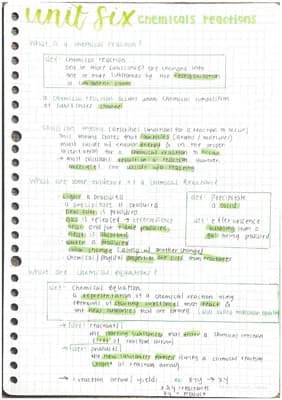 unit six chemicals reactions
What is a chemical reaction?
def: Chemical reaction
one or more substances are changed into
one or more substances by the reorganization
of component atoms
a chemical reaction occurs when chemical composition
of substances changes
Collision theory (describes conditions for a reaction to occur)
this theory states that particles (atoms / molecules)
must collide w/ enough energy & in the proper
orientation for a chemical reaction to occur
→ most collisions result in a reaction however
molecules can collide w/o reacting
What are some evidence of a Chemical Reaction?
Light is produced
a precipitate is produced
New odor is produced
gas is released → effervescence
heat and/or flame produced
heat is absorbed
water is produced
color change
chemical/physical properties are diff from reactants
def: Precipitate
a solid
def: effervescence
bubbling from a
gas being produced
What are chemical equations?
def: Chemical equation
a representation of a chemical reaction using
formulas of starting substances that react &
the new substances that are formed
def: reactants
the starting substances that enter a chemical reaction
(left of reaction arrow)
def: products
the new substances formed during a chemical reaction
(right of reaction arrow)
→ (reaction arrow / yield)
ex: x+y → xy
x & y = reactants
xy = product